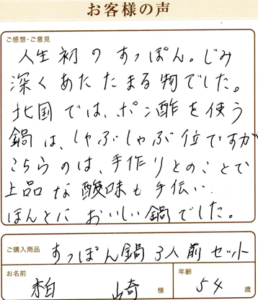 お客様の声
ご感想・ご意見
人生初のすっぽん。じみ
深くあたたまる物でした。
北国では、ポン酢を使う
鍋は、しゃぶしゃぶ位ですが
こちらのは、手作りとのことで
上品な酸味も手伝い
ほんとにおいしい鍋でした。
ご購入商品
すっぽん鍋3人前セット
お名前 柏 崎 様 年齢 54 歳